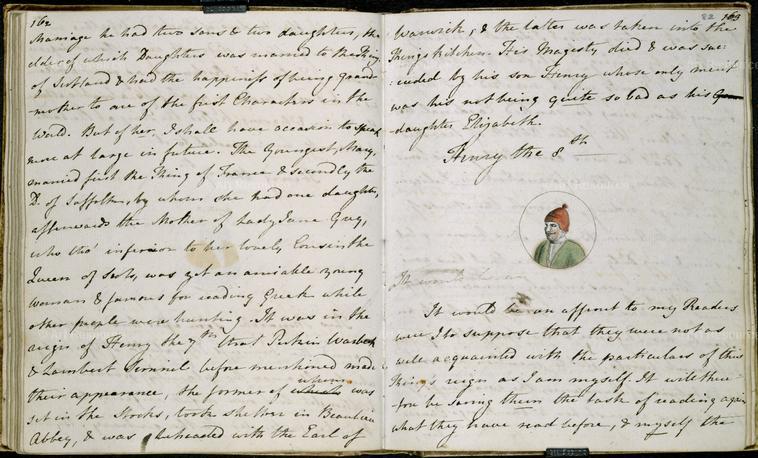 162
Marriage he had two sons & two daughters, the
elder of which Daughters was married to the King
of Scotland & had the happiness of being grand-
mother to one of the first Characters in the
World. But of her, I shall have occasion to speak
more at large in future. The Youngest, Mary,
married first the King of France & secondly the
D. of Suffolk, by whom she had one daughter,
afterwards the Mother of Lady Jane Grey,
who tho' inferior to her lovely Cousin the
Queen of Scots, was yet an amiable young
woman & famous for reading Greek while
other people were hunting. It was in the
reign of Henry the 7th that Perkin Warbeck
& Lambert Simnel before mentioned made
their appearance, the former of whom was
set in the Stocks, took shelter in Beaulieu
Abbey, & was beheaded with the Earl of
82 163
Warwick, & the latter was taken into the
Kings kitchen. His Majesty died & was suc-
:ceeded by his son Henry whose only merit
was his not being quite so bad as his
daughter Elizabeth.
Henry the 8th
It would be an
It would be an affront to my Readers
were I to suppose that they were not as
well acquainted with the particulars of this
King's reign as I am myself. It will there
:fore be saving them the task of reading again
what they have read before, & myself the